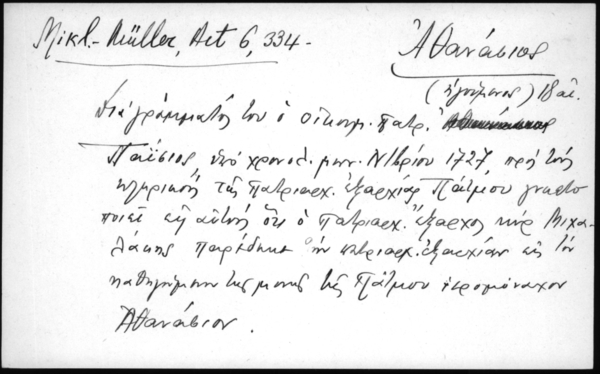 Mikl.-Müller, Act 6, 334.
Ἀθανάσιος
(ἡγούμενος) 18 αἰ.
Διὰ γράμματός του ὁ οἰκουμ. πατρ.
Παΐσιος ὑπὸ χρονολ. μην. Νβρίου 1727, πρὸς τοὺς
κληρικοὺς τῆς πατριαρχ. ἐξαρχίας Πάτμου γνωστο
ποιεῖ εἰς αὐτοὺς ὅτι ὁ πατριαρχ. ἔξαρχος κὺρ Μιχα-
λάκης παρέδωκε τὴν πατριαρχ. ἐξαρχίαν εἰς τὸν
καθηγούμενον τῆς μονῆς τῆς Πάτμου ἱερομόναχον
Ἀθανάσιον.